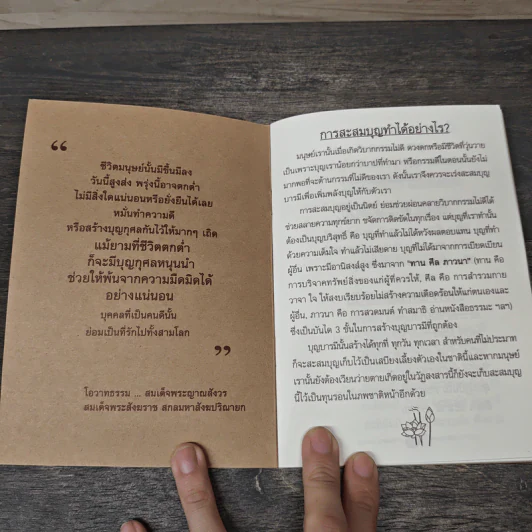 “
ชีวิตมนุษย์นั้นมีขึ้นมีลง
วันนี้สูงส่ง พรุ่งนี้อาจตกต่ำ
ไม่มีสิ่งใดแน่นอนหรือยั่งยืนได้เลย
หมั่นทำความดี
หรือสร้างบุญกุศลกันไว้ให้มากๆ เถิด
แม้ยามที่ชีวิตตกต่ำ
ก็จะมีบุญกุศลหนุนนำ
ช่วยให้พ้นจากความมืดมิดได้
อย่างแน่นอน
บุคคลที่เป็นคนดีนั้น
ย่อมเป็นที่รักไปทั้งสามโลก
”
โอวาทธรรม ... สมเด็จพระญาณสังวร
สมเด็จพระสังฆราช สกลมหาสังฆปริณายก
การสะสมบุญทำได้อย่างไร?
มนุษย์เรานั้นเมื่อเกิดวิบากกรรมไม่ดี ดวงตกหรือมีชีวิตที่วุ่นวาย
เป็นเพราะบุญเราน้อยกว่าบาปที่ทำมา หรือกรรมดีในตอนนั้นยังไม่
มากพอที่จะต้านกรรมที่ไม่ดีของเรา ดังนั้นเราจึงควรจะเร่งสะสมบุญ
บารมีเพื่อเพิ่มพลังบุญให้กับตัวเรา
การสะสมบุญอยู่เป็นนิตย์ ย่อมช่วยผ่อนคลายวิบากกรรมไม่ดีได้
ช่วยสลายความทุกข์ยาก ขจัดการติดขัดในทุกเรื่อง แต่บุญที่เราทำนั้น
ต้องเป็นบุญบริสุทธิ์ คือ บุญที่ทำแล้วไม่ได้หวังผลตอบแทน บุญที่ทำ
ด้วยความเต็มใจ ทำแล้วไม่เสียดาย บุญที่ไม่ได้มาจากการเบียดเบียน
ผู้อื่น เพราะมีอานิสงส์สูง ซึ่งมาจาก "ทาน ศีล ภาวนา" (ทาน คือ
การบริจาคทรัพย์สิ่งของแก่ผู้ที่ควรให้, ศีล คือ การสำรวมกาย
วาจา ใจ ให้สงบเรียบร้อยไม่สร้างความเดือดร้อนให้แก่ตนเองและ
ผู้อื่น, ภาวนา คือ การสวดมนต์ ทำสมาธิ อ่านหนังสือธรรมะ ฯลฯ)
ซึ่งเป็นบันได 3 ขั้นในการสร้างบุญบารมีที่ถูกต้อง
บุญบารมีนั้นสร้างได้ทุกที่ ทุกวัน ทุกเวลา สำหรับคนที่ไม่ประมาท
ก็จะสะสมบุญเก็บไว้เป็นเสบียงเลี้ยงตัวเองในชาตินี้และหากมนุษย์
เรานั้นยังต้องเวียนว่ายตายเกิดอยู่ในวัฏสงสารนี้ก็ยังจะเก็บสะสมบุญ
นี้ไว้เป็นทุนรอนในภพชาติหน้าอีกด้วย